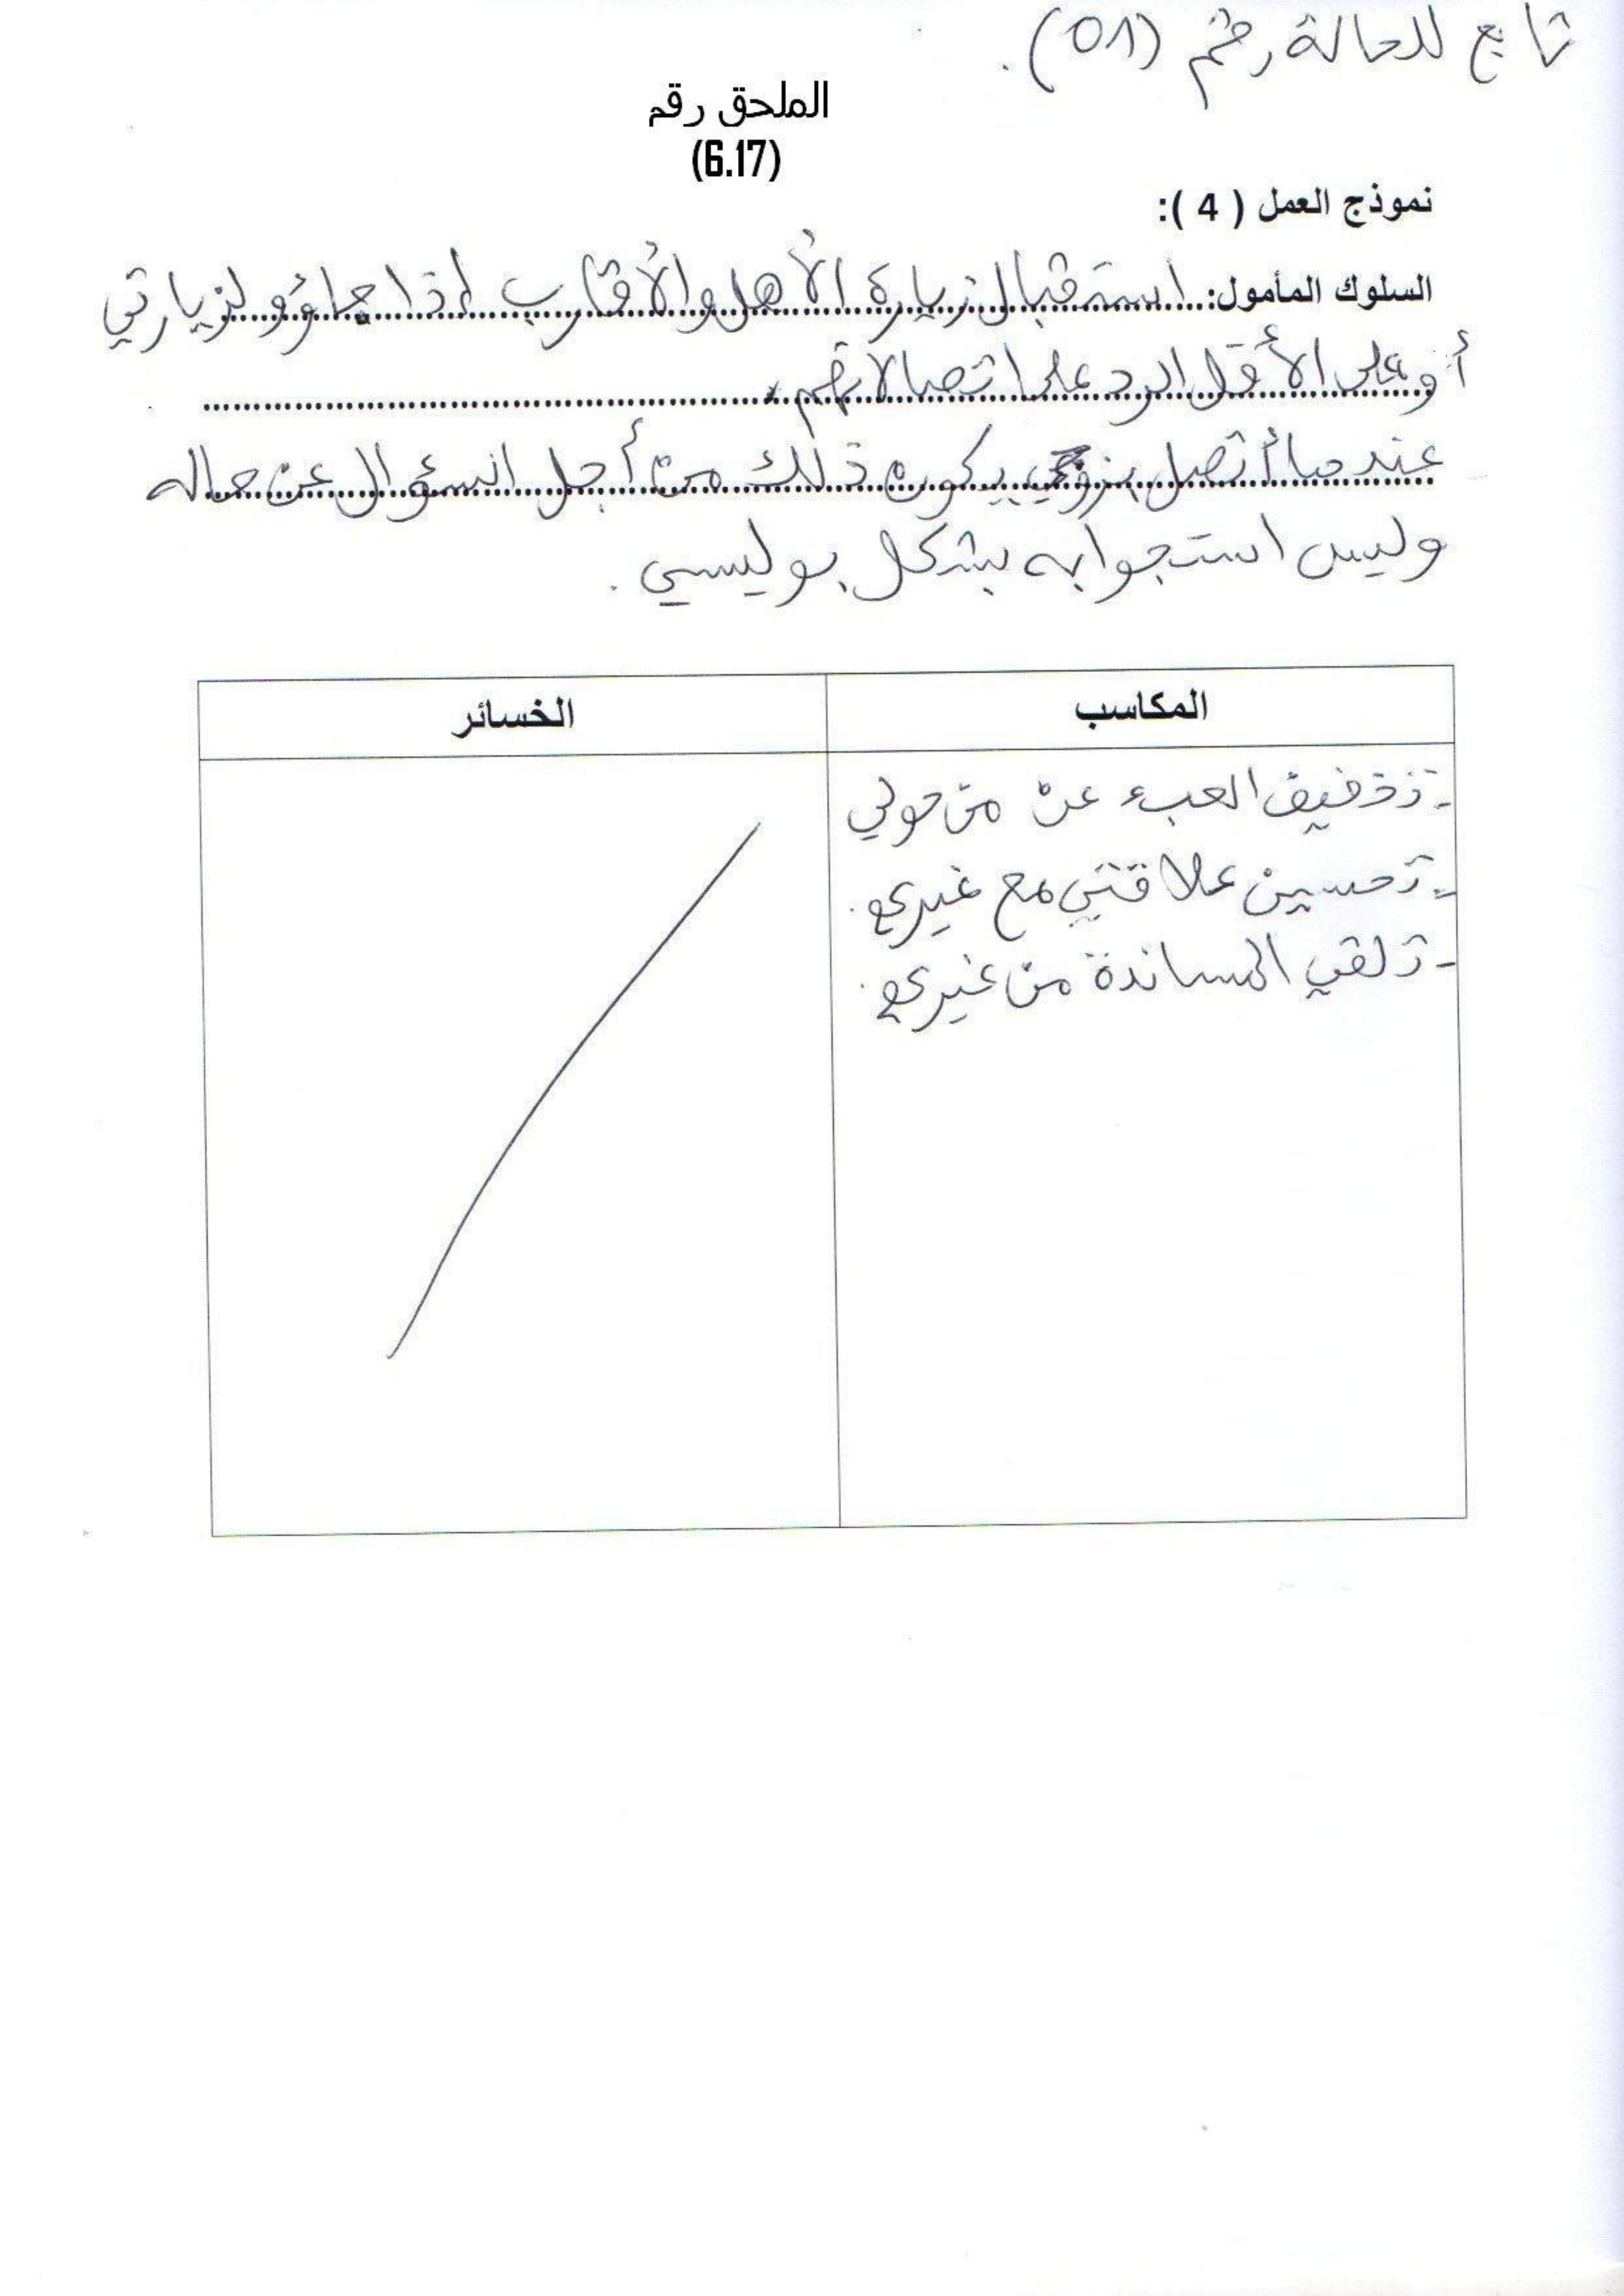 تابع للحالة رقم (01).
الملحق رقم
(6.17)
نموذج العمل ( 4 ):
السلوك المأمول: استقبال زيارة الأهل والأقارب إذا جاؤو لزيارتي
أو على الأقل الرد على اتصالاتهم.
عندما أتصل بزوجي يكون ذلك من أجل السؤال عن حاله
وليس استجوابه بشكل بوليسي.
المكاسب الخسائر
- تخفيف العبء عن من حولي
- تحسين علاقتي مع غيري.
- تلقي المساندة من غيري.